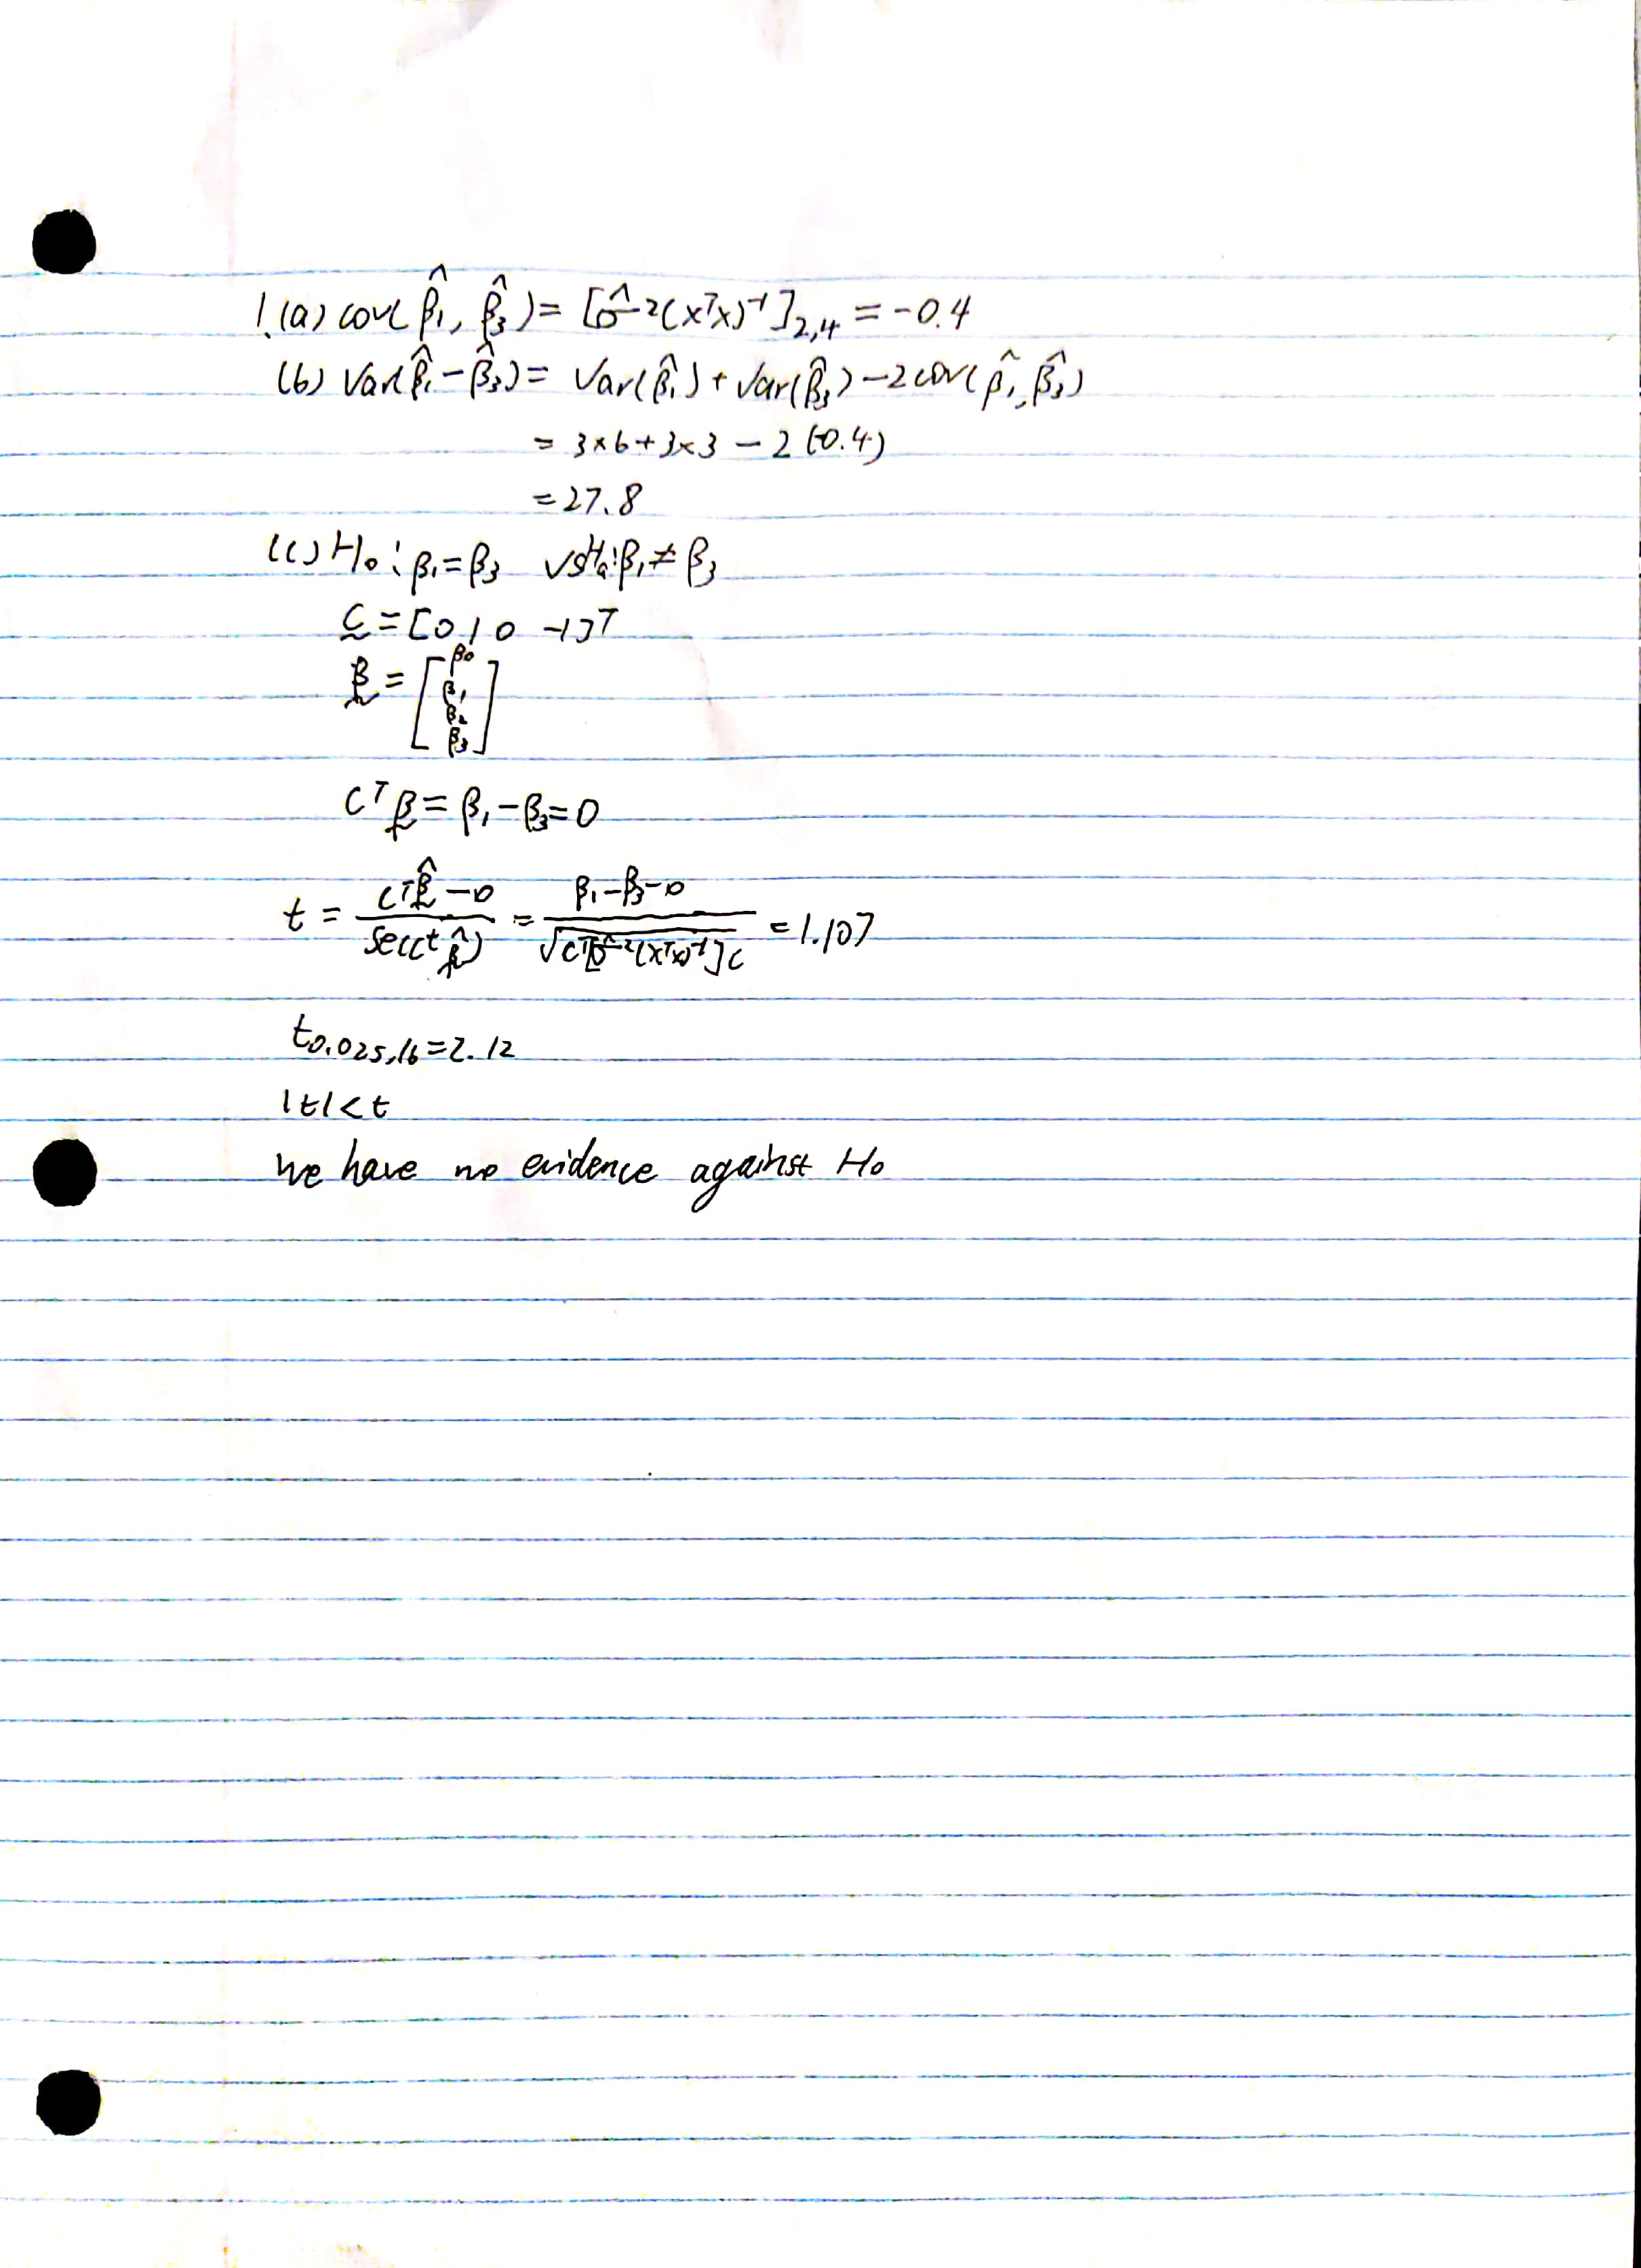 1.(a) cov(β̂₁, β̂₃) = [σ̂²(xᵀx)⁻¹]₂,₄ = -0.4
(b) Var(β̂₁ - β̂₃) = Var(β̂₁) + Var(β̂₃) - 2cov(β̂₁, β̂₃)
= 3×6 + 3×3 - 2(-0.4)
= 27.8
(c) H₀: β₁ = β₃ vs Hₐ: β₁ ≠ β₃
c = [0 1 0 -1]ᵀ
β = [β₀ β₁ β₂ β₃]
cᵀβ = β₁ - β₃ = 0
t = (cᵀβ̂ - 0)/(se(cᵗβ̂)) = (β₁ - β₃ - 0)/√(cᵀ[σ̂²(xᵀx)⁻¹]c) = 1.107
t₀.₀₂₅,₁₆ = 2.12
|t| < t
we have no evidence against H₀